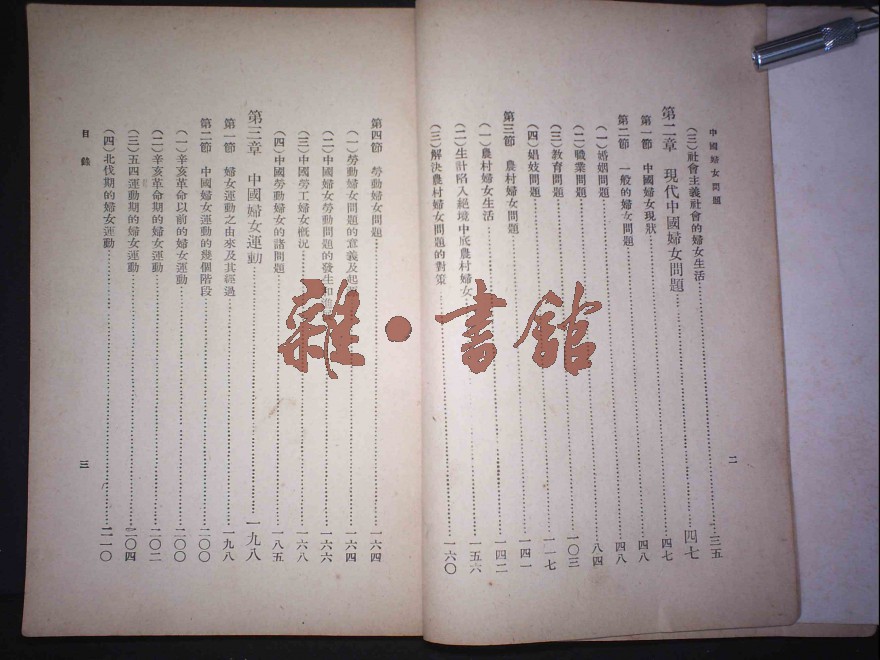 中國婦女問題
(三)社會主義社會的婦女生活……三五
第二章 現代中國婦女問題……四七
第一節 中國婦女現狀……四七
第二節 一般的婦女問題……四八
(一)婚姻問題……四八
(二)職業問題……八四
(三)教育問題……一〇三
(四)娼妓問題……一一七
第三節 農村婦女問題……一四一
(一)農村婦女生活……一四二
(二)生計陷入絕境中底農村婦女……一五六
(三)解決農村婦女問題的對策……一六〇
二
第四節 勞動婦女問題……一六四
(一)勞動婦女問題的意義及起……一六四
(二)中國婦女勞動問題的發生和進……一六六
(三)中國勞工婦女概況……一六八
(四)中國勞動婦女的諸問題……一八五
第三章 中國婦女運動……一九八
第一節 婦女運動之由來及其經過……一九八
第二節 中國婦女運動的幾個階段……二〇〇
(一)辛亥革命以前的婦女運動……二〇〇
(二)辛亥革命期的婦女運動……二〇二
(三)五四運動期的婦女運動……二〇四
(四)北伐期的婦女運動……二一〇
目錄
三
雜·書館